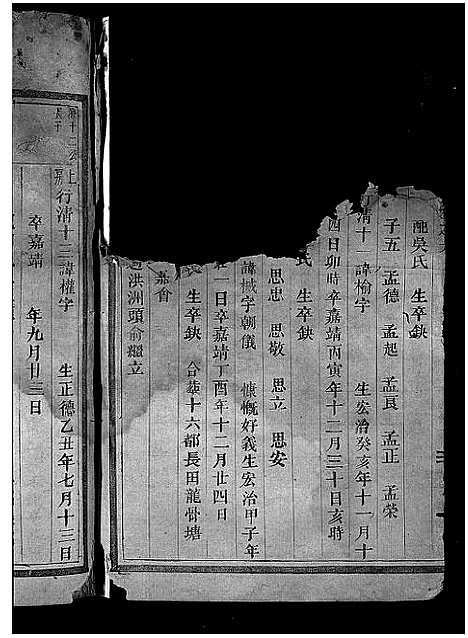 配吳氏 生卒缺
子五 孟德 孟起 孟良 孟正 孟榮
清十一諱榆字 生宏治癸亥年十一月十
四日卯時卒嘉靖丙寅年十二月三十日亥時
氏 生卒缺
思忠 思敬 思立 思安
諱棫字朝儀 慷慨好義生宏治甲子年
一日卒嘉靖丁酉年十二月廿四日
生卒缺 合葬十六都長田龍骨塘
嘉會
洪洲頭俞繼立
行清十三諱權字 生正德乙丑年七月十三日
卒嘉靖 年九月廿三日